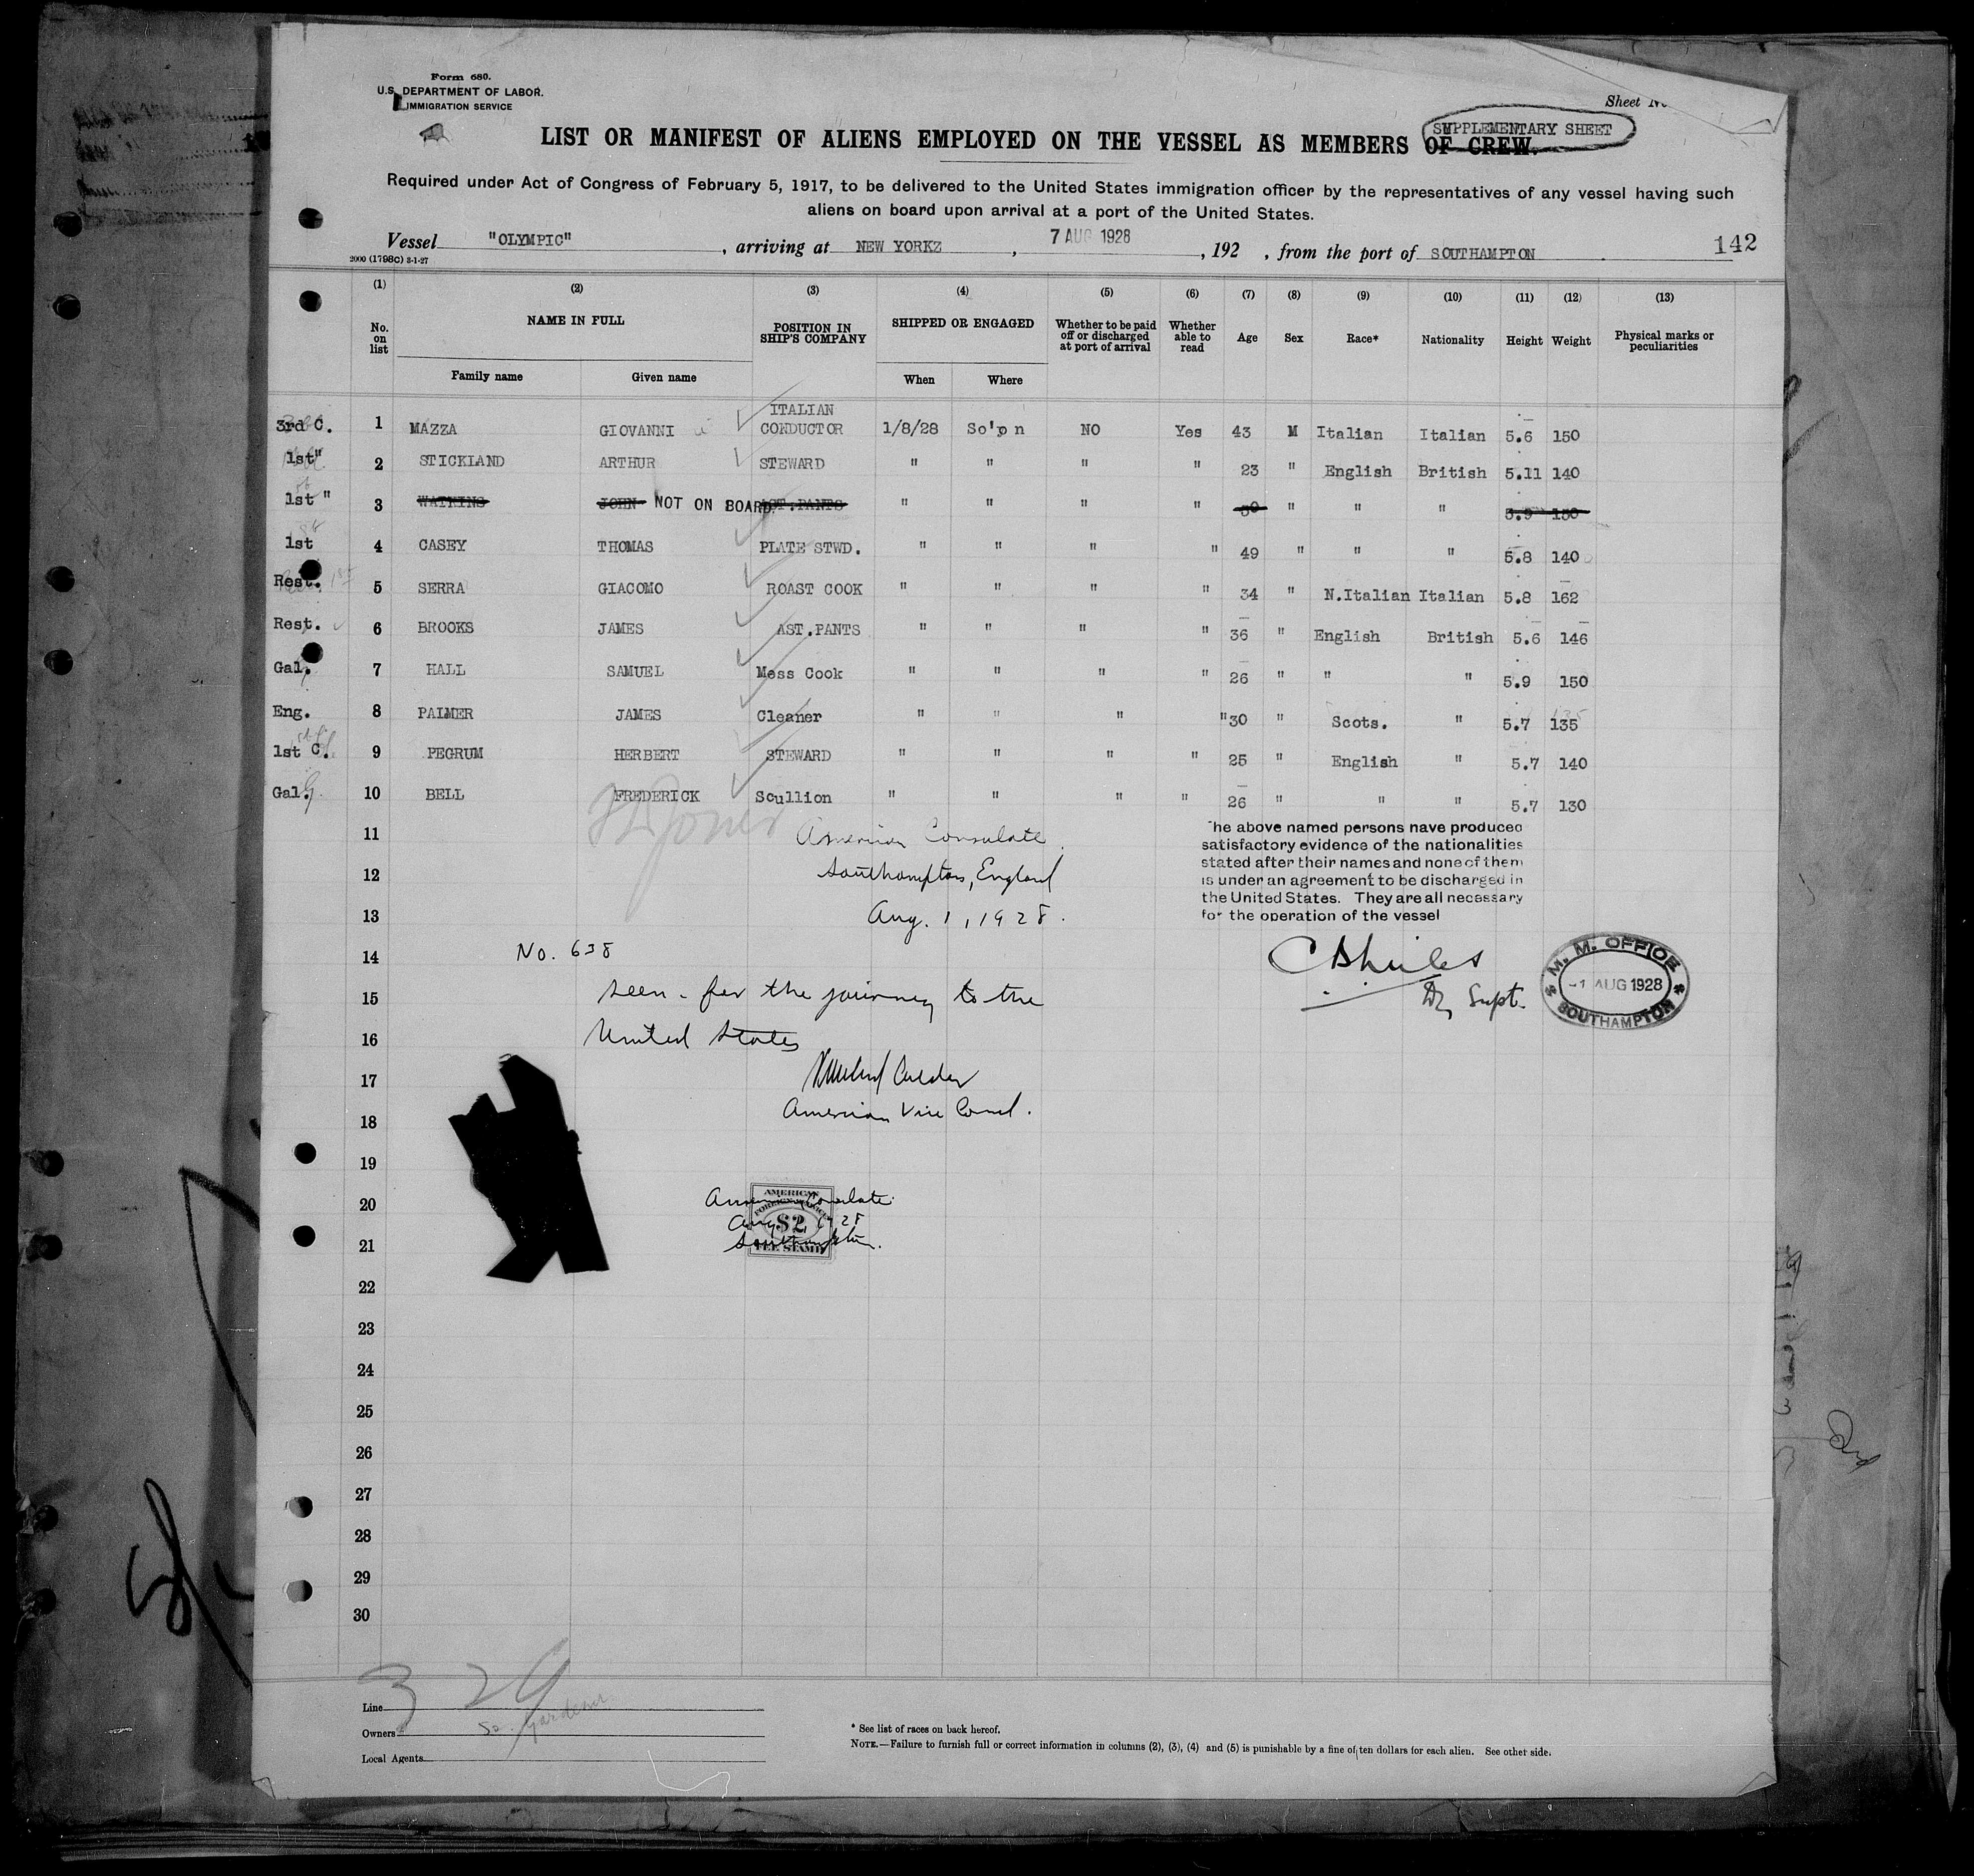 Form 680.
U.S. DEPARTMENT OF LABOR.
IMMIGRATION SERVICE
Sheet
SUPPLEMENTARY SHEET
LIST OR MANIFEST OF ALIENS EMPLOYED ON THE VESSEL AS MEMBERS OF CREW.
Required under Act of Congress of February 5, 1917, to be delivered to the United States immigration officer by the representatives of any vessel having such
aliens on board upon arrival at a port of the United States.
Vessel "OLYMPIC", arriving at NEW YORKZ, 7 AUG 1928, 192 , from the port of SOUTHAMPTON 142
2000 (1798c) 3-1-27
(1) (2) (3) (4) (5) (6) (7) (8) (9) (10) (11) (12) (13)
No. on list NAME IN FULL POSITION IN SHIP'S COMPANY SHIPPED OR ENGAGED Whether to be paid off or discharged at port of arrival Whether able to read Age Sex Race* Nationality Height Weight Physical marks or peculiarities
Family name Given name When Where
3rd C. 1 MAZZA GIOVANNI ITALIAN CONDUCTOR 1/8/28 So'p n NO Yes 43 M Italian Italian 5.6 150
1st " 2 STICKLAND ARTHUR STEWARD " " " " 23 " English British 5.11 140
1st " 3 WATKINS JOHN NOT ON BOARD AST.PANTS " " " " 30 " " " 5.9 150
1st 4 CASEY THOMAS PLATE STWD. " " " " 49 " " " 5.8 140
Rest. 5 SERRA GIACOMO ROAST COOK " " " " 34 " N.Italian Italian 5.8 162
Rest. 6 BROOKS JAMES AST.PANTS " " " " 36 " English British 5.6 146
Gal. 7 HALL SAMUEL Mess Cook " " " " 26 " " " 5.9 150
Eng. 8 PALMER JAMES Cleaner " " " " 30 " Scots. " 5.7 135
1st C. 9 PEGRUM HERBERT STEWARD " " " " 25 " English " 5.7 140
Gal. 10 BELL FREDERICK Scullion " " " " 26 " " " 5.7 130
11 American Consulate
12 Southampton, England
13 Aug. 1, 1928.
The above named persons have produced
satisfactory evidence of the nationalities
stated after their names and none of them
is under an agreement to be discharged in
the United States. They are all necessary
for the operation of the vessel
14 No. 638
15 Seen - for the journey to the
16 United States
Supt.
M. M. OFFICE
-1 AUG 1928
SOUTHAMPTON
17
18 American Vice Consul.
19
20 American Consulate
Aug 1, 1928
21 Southampton.
AMERICAN
FOREIGN SERVICE
$2
FEE STAMP
22
23
24
25
26
27
28
29
30
3 29
Line
Owners
Local Agents
* See list of races on back hereof.
NOTE.—Failure to furnish full or correct information in columns (2), (3), (4) and (5) is punishable by a fine of ten dollars for each alien. See other side.